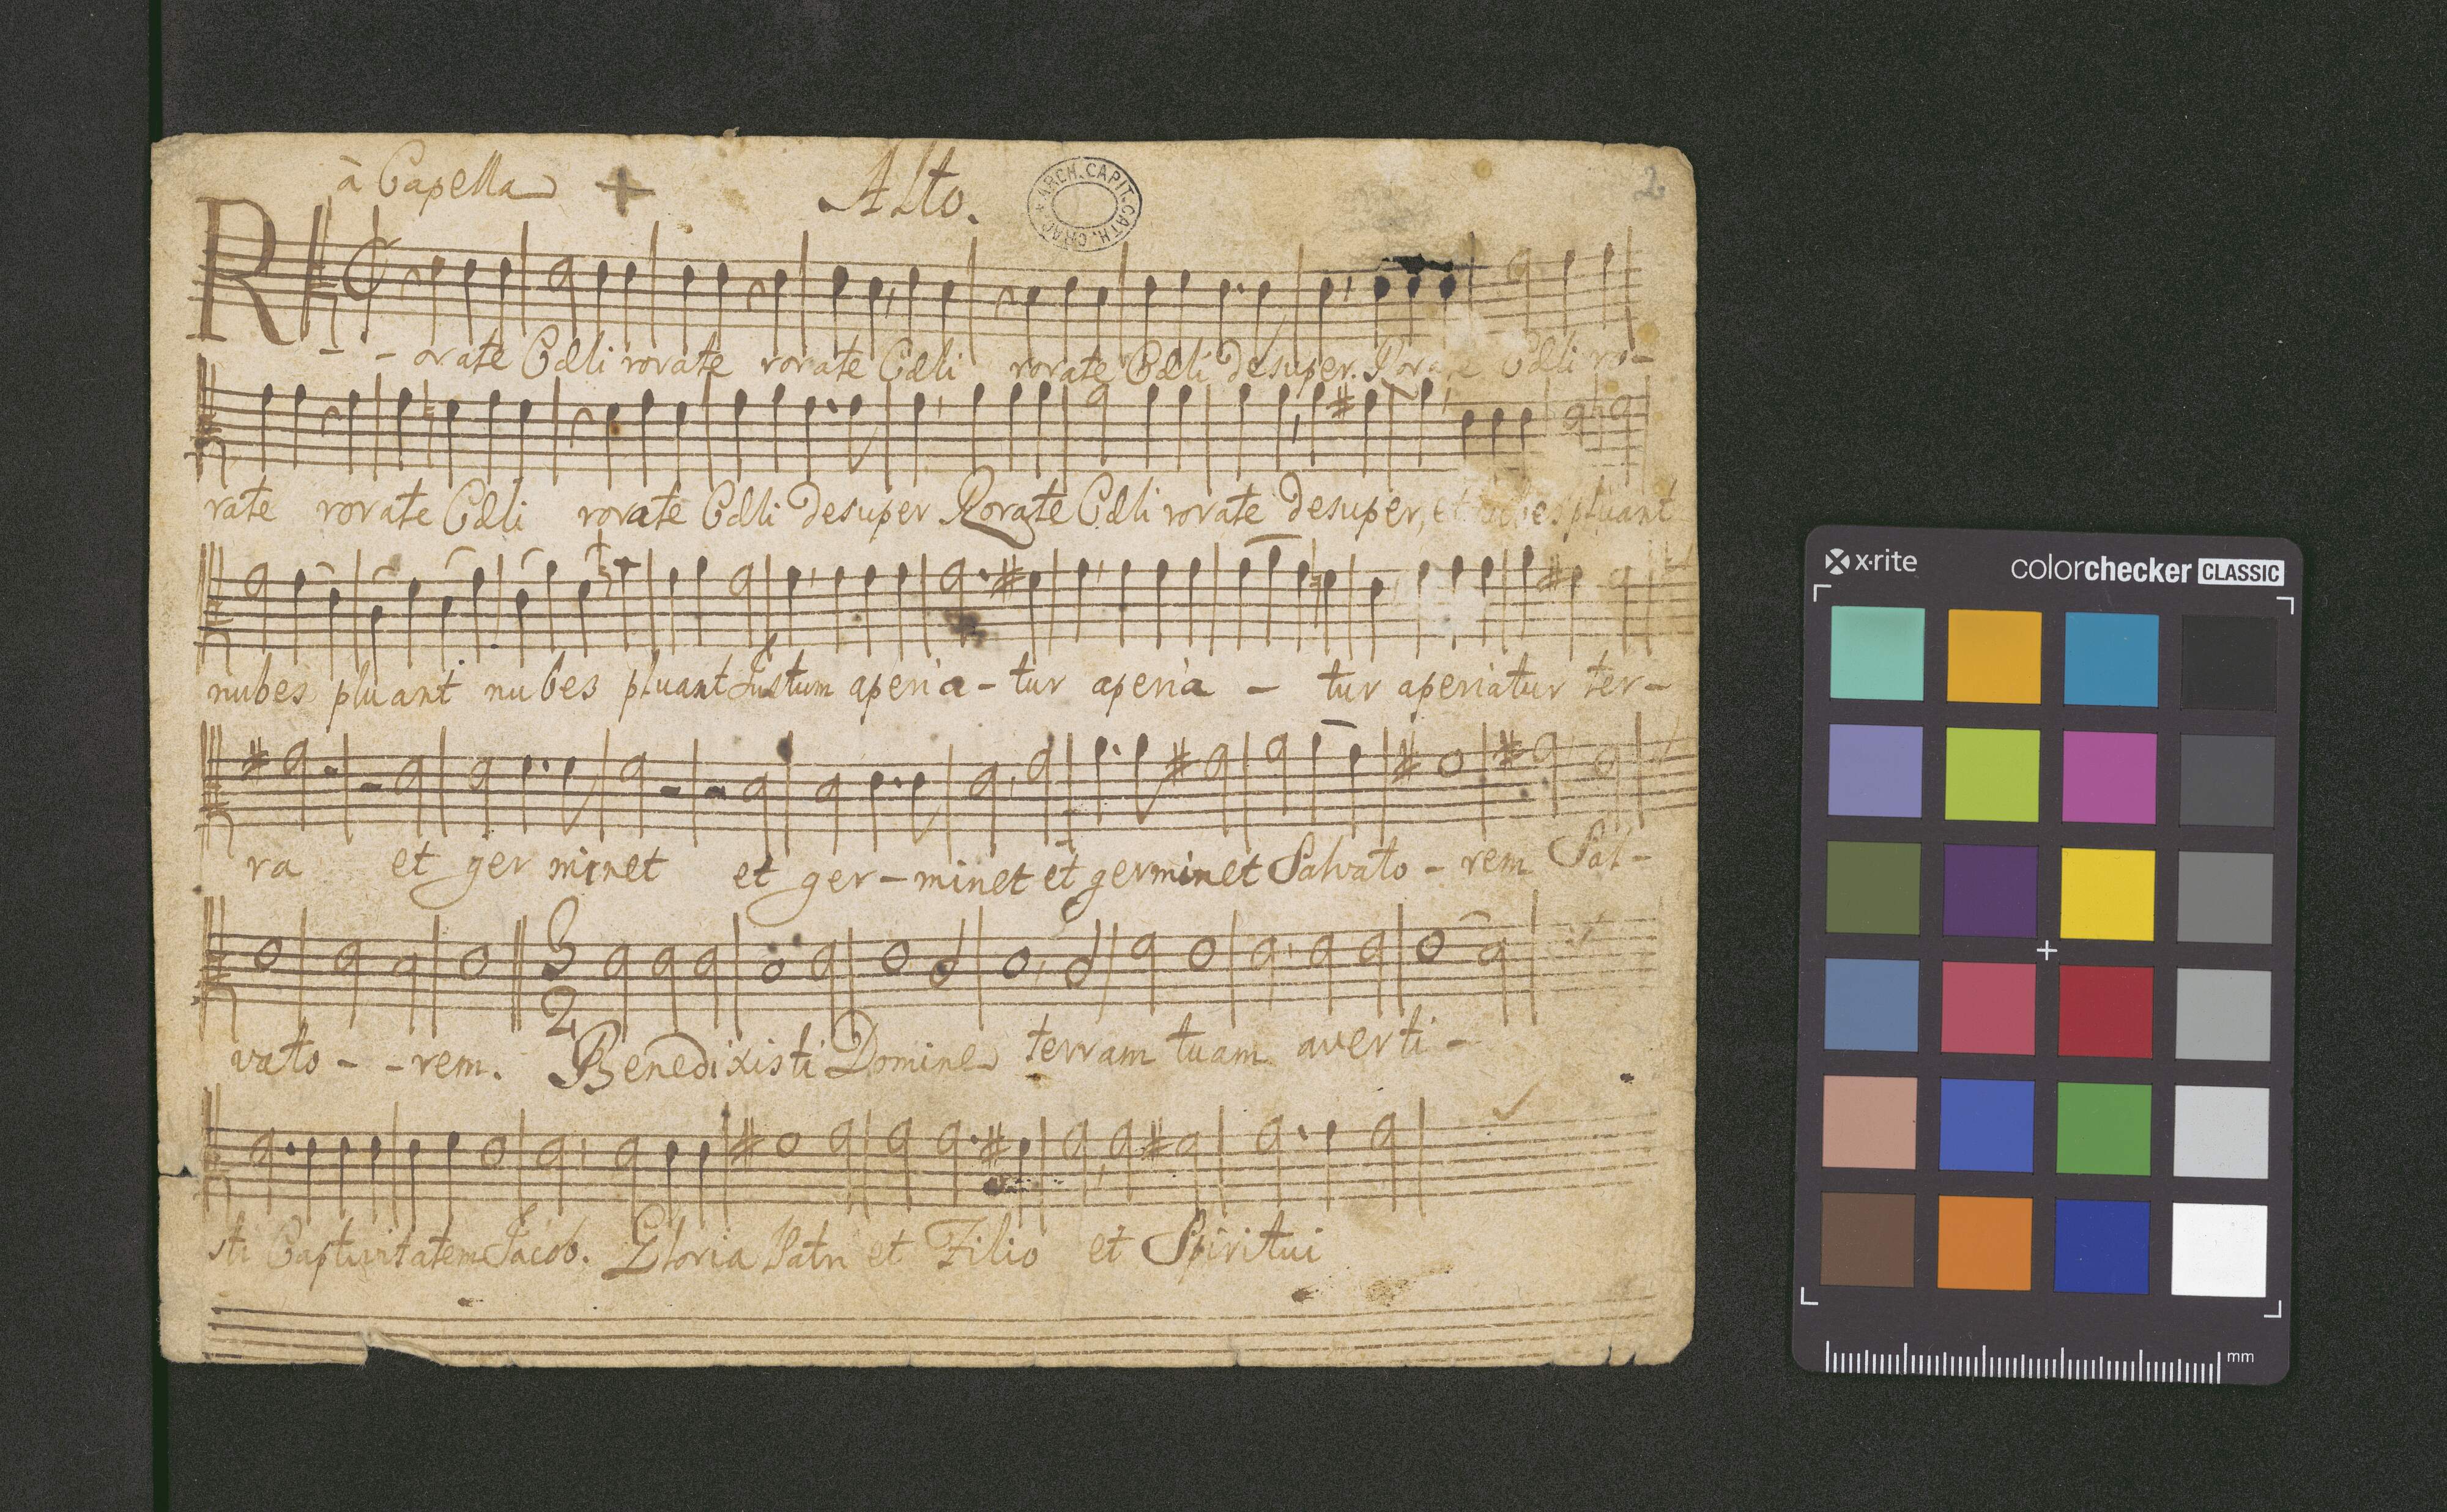 à Capella
Alto.
ARCH. CAPIT. CATH. CRAC.
2
R - - orate Cæli rorate rorate Cæli rorate Cæli desuper. Rorate Cæli ro-
rate rorate Cæli rorate Cæli desuper Rorate Cæli rorate desuper, et nubes pluant
nubes pluant nubes pluant Justum aperia - tur aperia - tur aperiatur ter -
ra et ger minet et ger - minet et germinet Salvato - rem Sal -
vato - - rem. 3 2 Benedixisti Domine terram tuam averti -
sti Captivitatem Jacob. Gloria Patri et Filio et Spiritui
x-rite
colorchecker CLASSIC
mm